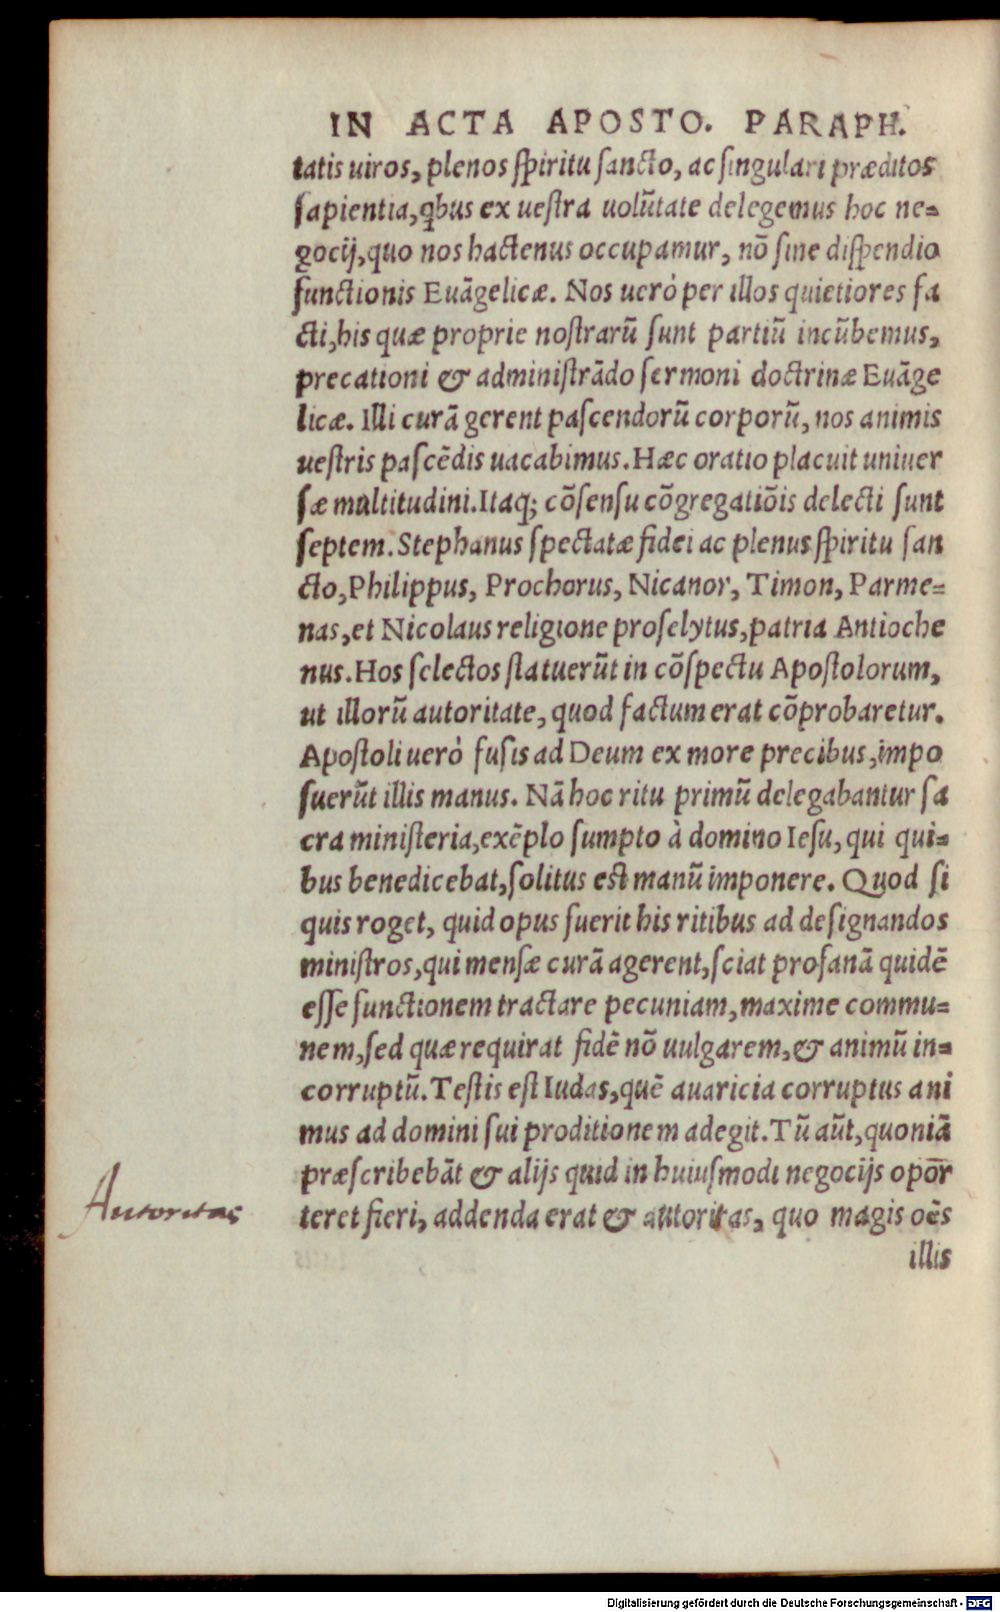 IN ACTA APOSTO. PARAPH.
tatis uiros, plenos spiritu sancto, ac singulari præditos
sapientia, qbus ex uestra uolũtate delegemus hoc ne=
gocij, quo nos hactenus occupamur, nõ sine dispendio
functionis Euãgelicæ. Nos uerò per illos quietiores fa
cti, his quæ proprie nostrarũ sunt partiũ incũbemus,
precationi & administrãdo sermoni doctrinæ Euãge
licæ. Illi curã gerent pascendorũ corporũ, nos animis
uestris pascẽdis uacabimus. Hæc oratio placuit uniuer
sæ multitudini. Itaq; cõsensu cõgregatiõis delecti sunt
septem. Stephanus spectatæ fidei ac plenus spiritu san
cto, Philippus, Prochorus, Nicanor, Timon, Parme=
nas, et Nicolaus religione proselytus, patria Antioche
nus. Hos selectos statuerũt in cõspectu Apostolorum,
ut illorũ autoritate, quod factum erat cõprobaretur.
Apostoli uerò fusis ad Deum ex more precibus, impo
suerũt illis manus. Nã hoc ritu primũ delegabantur sa
cra ministeria, exẽplo sumpto à domino Iesu, qui qui=
bus benedicebat, solitus est manũ imponere. Quod si
quis roget, quid opus fuerit his ritibus ad designandos
ministros, qui mensæ curã agerent, sciat profanã quidẽ
esse functionem tractare pecuniam, maxime commu=
nem, sed quæ requirat fidẽ nõ uulgarem, & animũ in=
corruptũ. Testis est Iudas, quẽ auaricia corruptus ani
mus ad domini sui proditionem adegit. Tũ aũt, quoniã
præscribebãt & alijs quid in huiusmodi negocijs opor̃
teret fieri, addenda erat & autoritas, quo magis oẽs
Autoritas
illis
Digitalisierung gefördert durch die Deutsche Forschungsgemeinschaft - DFG